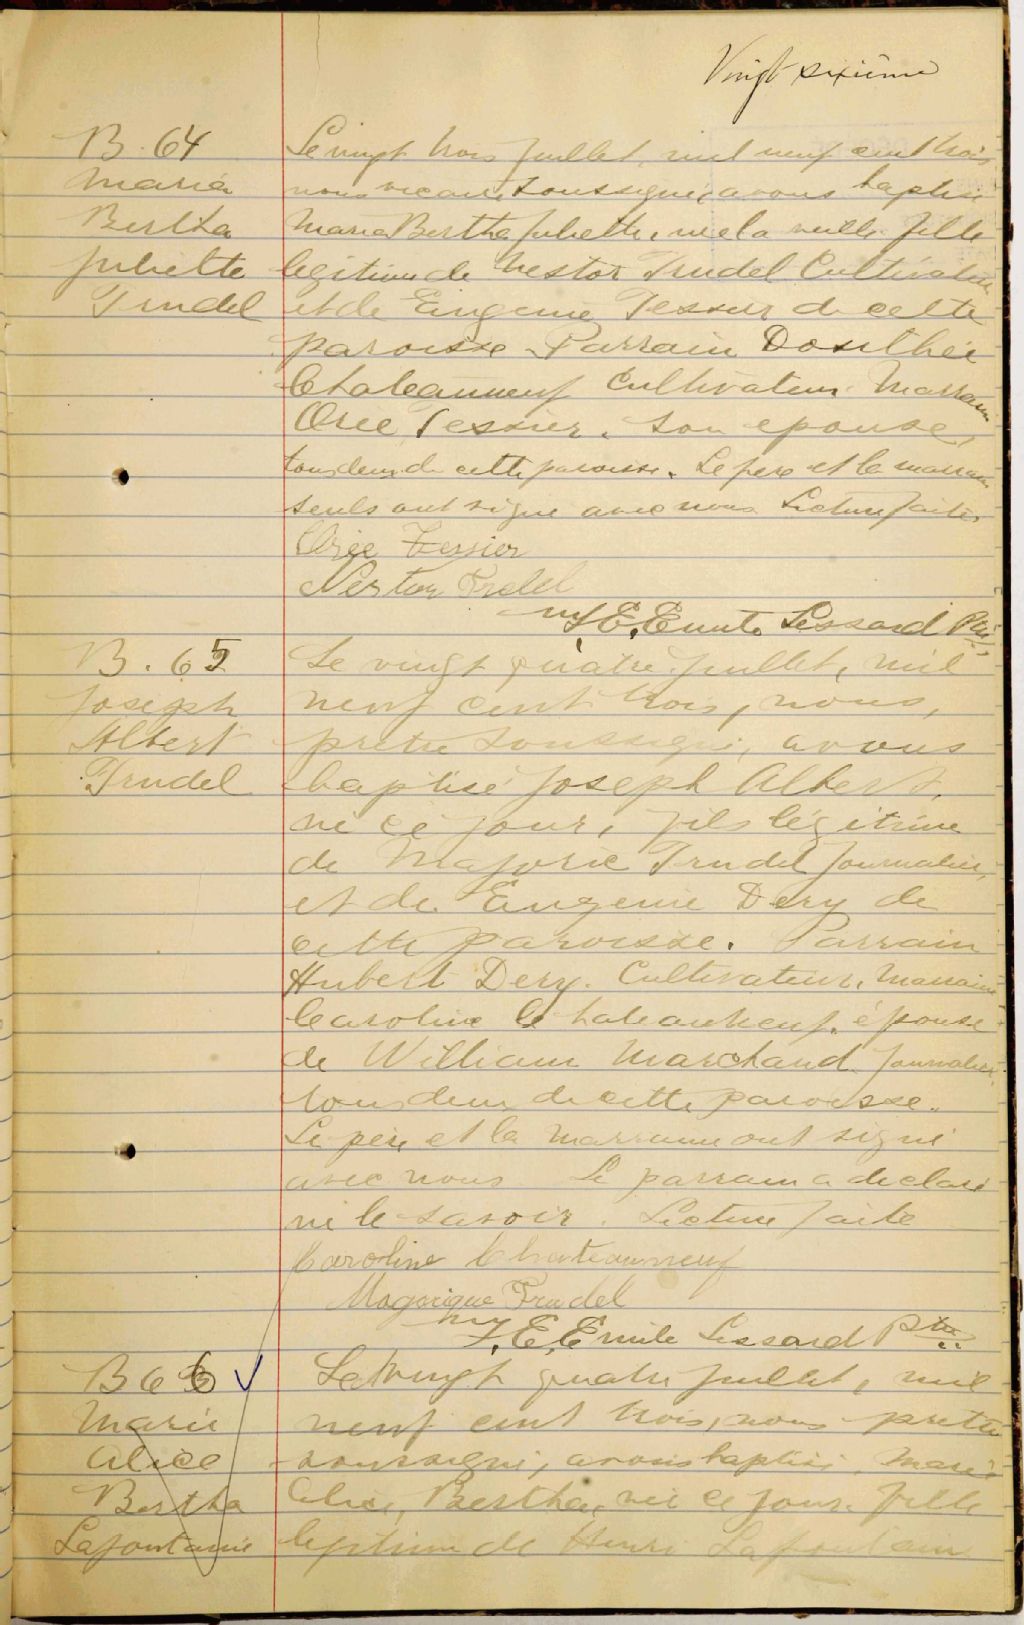 Vingt sixième
B. 64
Maria
Bertha
Juliette
Trudel
Le vingt trois Juillet, mil neuf cent trois
nous vicaire soussigné, avons baptisé
Maria Bertha Juliette, née la veille fille
legitime de Nestor Trudel Cultivateur
et de Eugenie Tessier de cette
paroisse Parrain Dosithée
Chateauneuf Cultivateur. Marraine
Oree Tessier. son epouse,
tous deux de cette paroisse. Le père et la marraine
seuls ont signé avec nous Lecture faite
Orée Tessier
Nestor Trudel
J. E. Emile Lessard Ptre
B. 65
Joseph
Albert
Trudel
Le vingt quatre Juillet, mil
neuf cent trois, nous,
prêtre soussigné, avons
baptisé Joseph Albert,
né ce jour, fils légitime
de Majoric Trudel journalier,
et de Eugenie Dery de
cette paroisse. Parrain
Hubert Dery. Cultivateur, Marraine
Caroline Chateauneuf. épouse
de William Marchand journalier
tous deux de cette paroisse.
Le père et la marraine ont signé
avec nous Le parrain a declaré
ne le savoir. Lecture faite
Caroline Chateauneuf
Magorique Trudel
J. E. Emile Lessard Ptre
B 66
Marie
Alice
Bertha
Lafontaine
Le vingt quatre Juillet, mil
neuf cent trois, nous prêtre
soussigné, avons baptisé, Marie
Alice, Bertha, née ce jour. fille
legitime de Henri Lafontaine